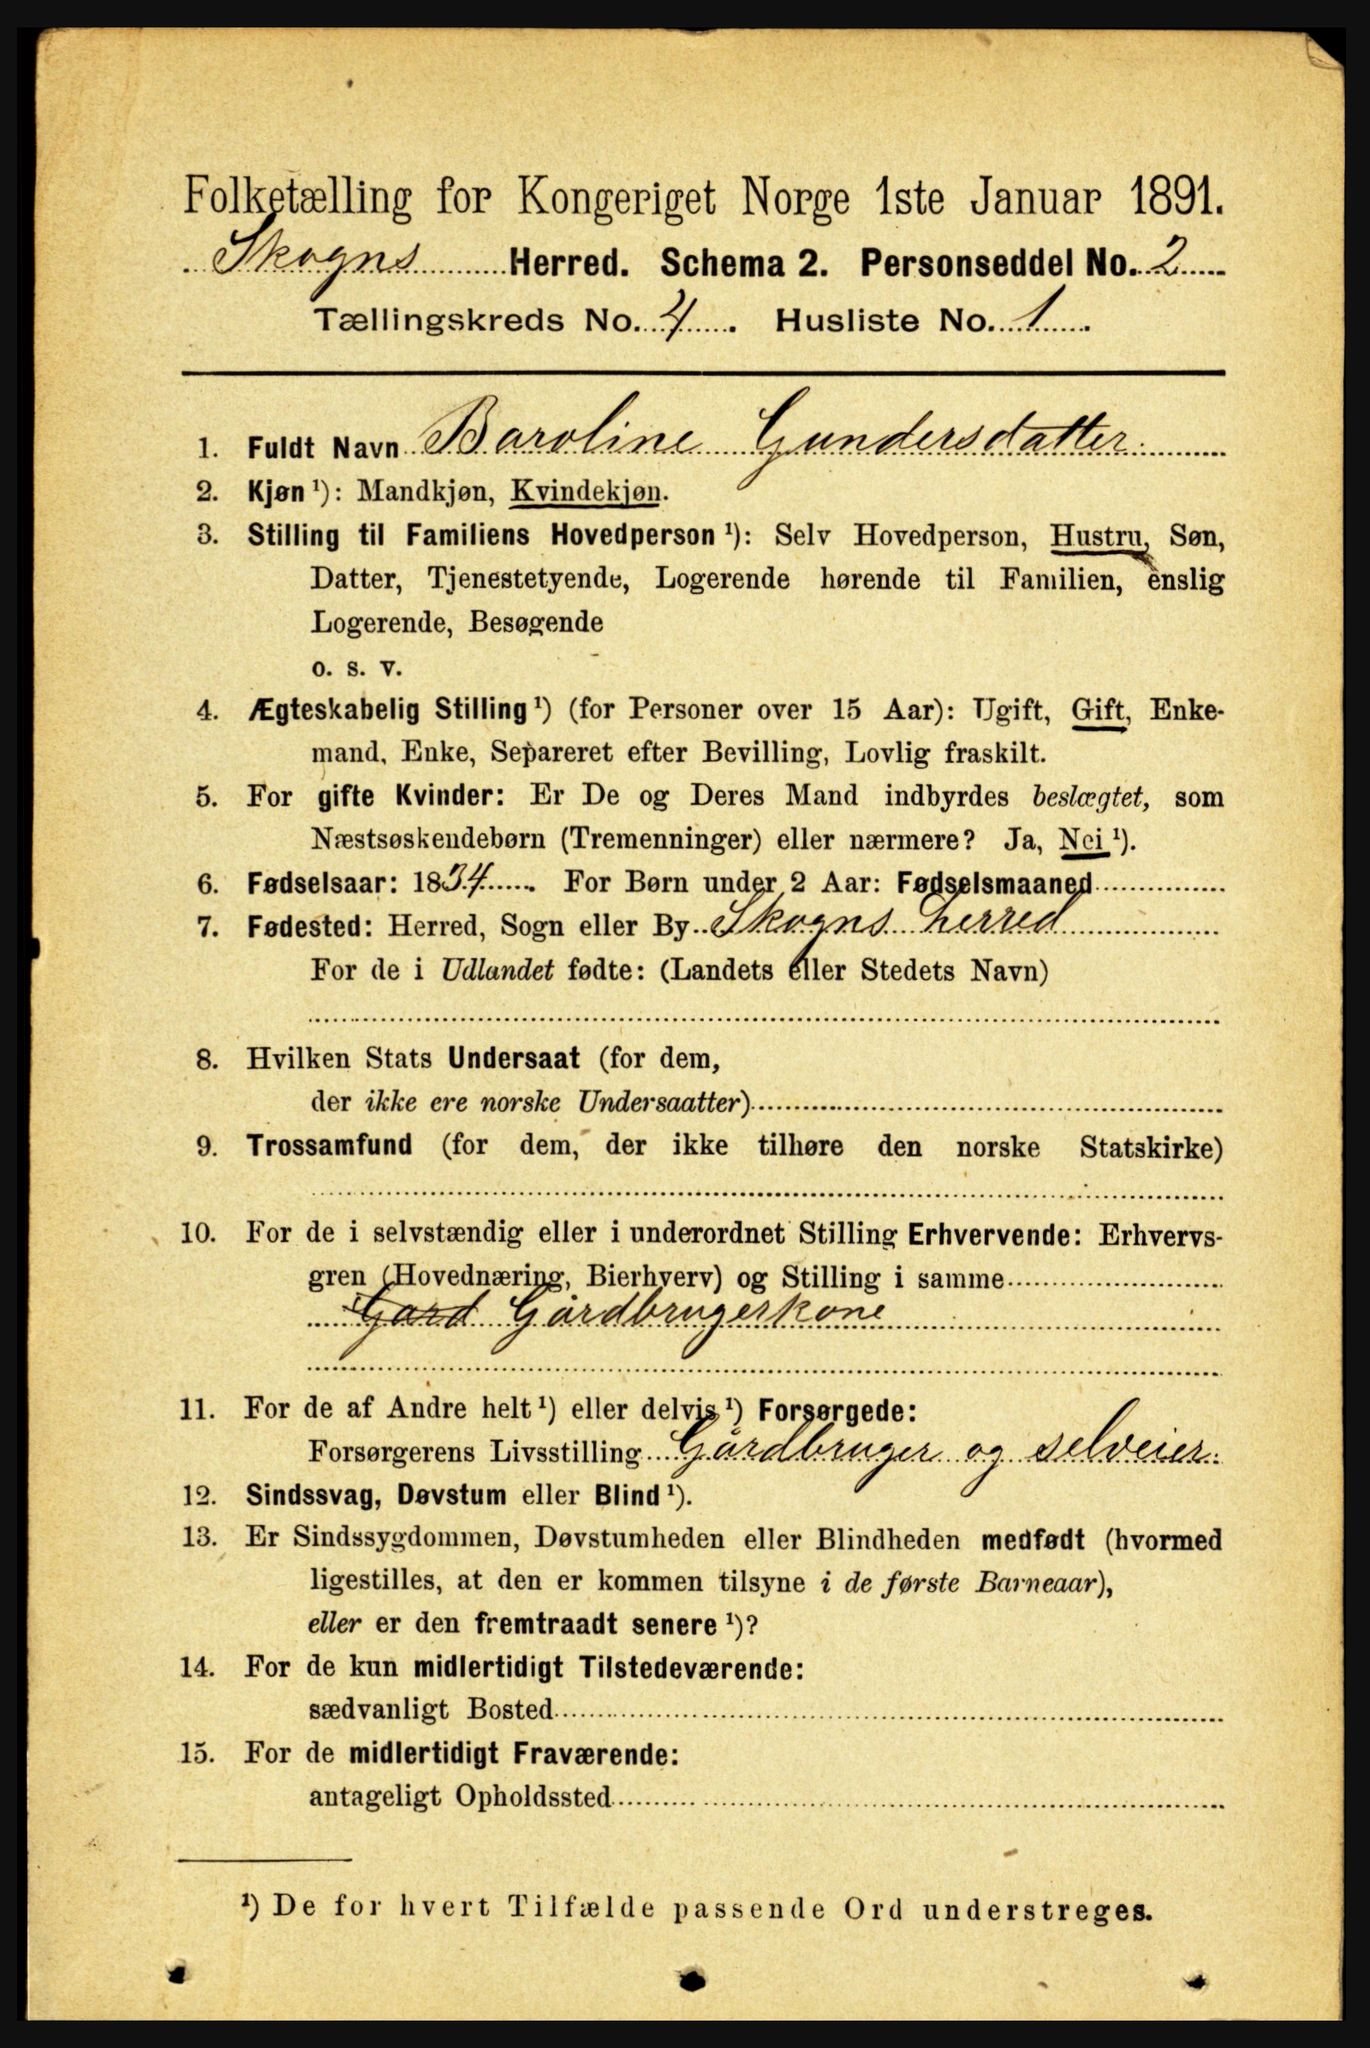 Folketælling for Kongeriget Norge 1ste Januar 1891.
Skogns Herred. Schema 2. Personseddel No. 2
Tællingskreds No. 4. Husliste No. 1
1. Fuldt Navn Baroline Gundersdatter.
2. Kjøn ¹): Mandkjøn, Kvindekjøn.
3. Stilling til Familiens Hovedperson ¹): Selv Hovedperson, Hustru, Søn,
Datter, Tjenestetyende, Logerende hørende til Familien, enslig
Logerende, Besøgende
o. s. v.
4. Ægteskabelig Stilling ¹) (for Personer over 15 Aar): Ugift, Gift, Enke-
mand, Enke, Separeret efter Bevilling, Lovlig fraskilt.
5. For gifte Kvinder: Er De og Deres Mand indbyrdes beslægtet, som
Næstsøskendebørn (Tremenninger) eller nærmere? Ja, Nei ¹).
6. Fødselsaar: 1834. For Børn under 2 Aar: Fødselsmaaned
7. Fødested: Herred, Sogn eller By Skogns herred
For de i Udlandet fødte: (Landets eller Stedets Navn)
8. Hvilken Stats Undersaat (for dem,
der ikke ere norske Undersaatter)
9. Trossamfund (for dem, der ikke tilhøre den norske Statskirke)
10. For de i selvstændig eller i underordnet Stilling Erhvervende: Erhvervs-
gren (Hovednæring, Bierhverv) og Stilling i samme
Gard Gårdbrugerkone
11. For de af Andre helt ¹) eller delvis ¹) Forsørgede:
Forsørgerens Livsstilling Gårdbruger og selveier.
12. Sindssvag, Døvstum eller Blind ¹).
13. Er Sindssygdommen, Døvstumheden eller Blindheden medfødt (hvormed
ligestilles, at den er kommen tilsyne i de første Barneaar),
eller er den fremtraadt senere ¹)?
14. For de kun midlertidigt Tilstedeværende:
sædvanligt Bosted
15. For de midlertidigt Fraværende:
antageligt Opholdssted
¹) De for hvert Tilfælde passende Ord understreges.